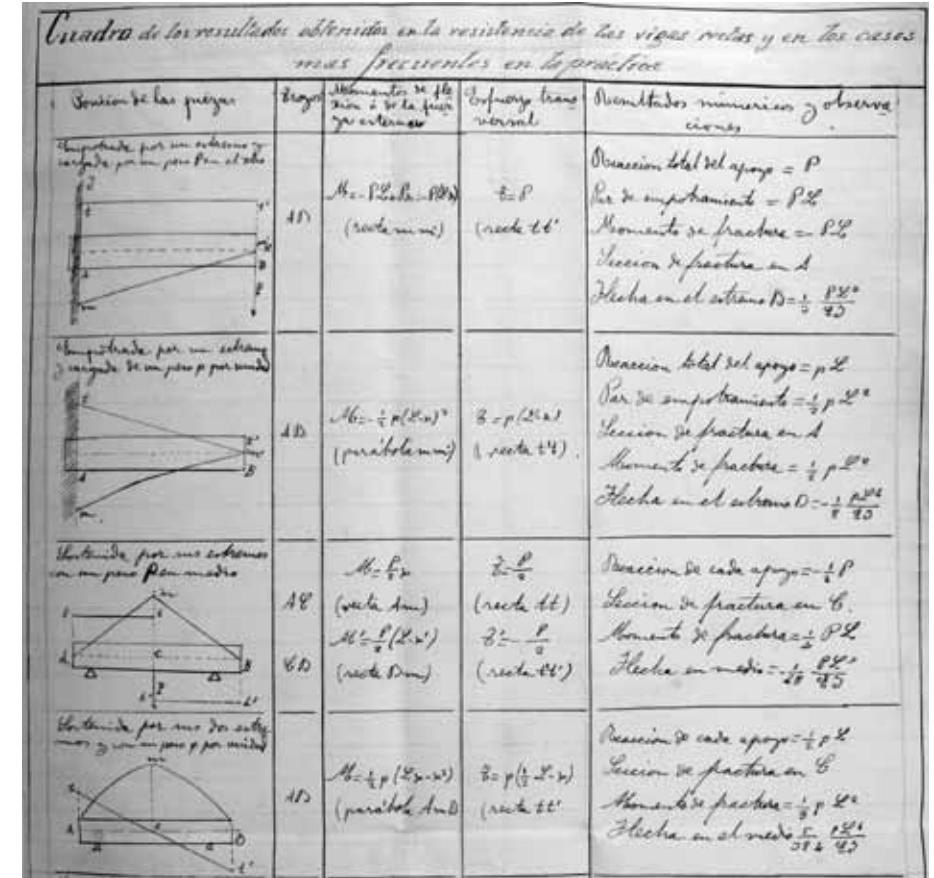 Cuadro de los resultados obtenidos en la resistencia de las vigas rectas y en los casos
mas frecuentes en la practica
Posicion de las piezas
Trozos
Momentos de fle
xion ó de la fuer
za externa
Esfuerzo trans
versal
Resultados númericos y observa
ciones
Empotrada por un extremo y
cargada por un peso P en el otro
AB
(recta mm')
t=P
(recta tt'
Reaccion total del apoyo = P
Par de empotramiento = PL
Momento de fractura = PL
Seccion de fractura en A
Flecha en el extremo B =
Empotrada por un extremo
y cargada de un peso p por unidad
AB
M=-½p(L-x)²
(parábola mm')
t=p(L-x)
(recta t't)
Reaccion total del apoyo = pL
Par de empotramiento = ½ pL²
Seccion de fractura en A
Momento de fractura = ½ pL²
Flecha en el extremo B =
Sostenida por sus extremos
con un peso P en medio
AC
M=P/2 x
(recta Am)
t=P/2
(recta tt)
CB
M'=P/2(L-x')
(recta Bm)
(recta tt')
Reaccion de cada apoyo =
Seccion de fractura en C.
Momento de fractura =
Flecha en medio =
Sostenida por sus dos extre
mos y con un peso p por unidad
AB
M=½p(Lx-x²)
(parábola AmB
t=p(½L-x)
(recta tt'
Reaccion de cada apoyo = ½pL
Seccion de fractura en C
Momento de fractura = pL²
Flecha en el medio